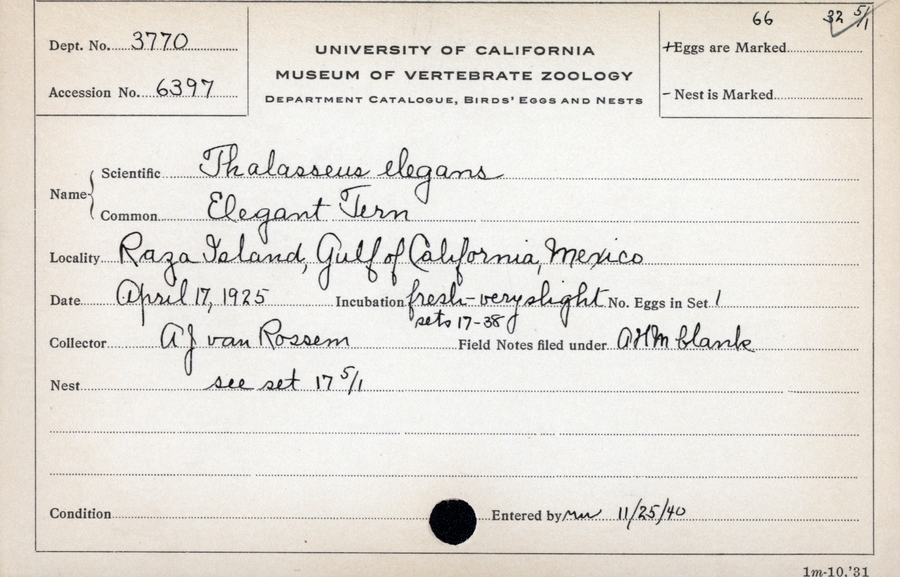 66 32 5/1
Dept. No. 3770
UNIVERSITY OF CALIFORNIA
+Eggs are Marked
MUSEUM OF VERTEBRATE ZOOLOGY
Accession No. 6397
DEPARTMENT CATALOGUE, BIRDS' EGGS AND NESTS
- Nest is Marked
Name { Scientific Thalasseus elegans
Common Elegant Tern
Locality Raza Island, Gulf of California, Mexico
Date April 17, 1925 Incubation fresh-very slight No. Eggs in Set 1
sets 17-38
Collector A J van Rossem Field Notes filed under AHM blank
Nest see set 17 5/1
Condition Entered by 11/25/40
1m-10,'31